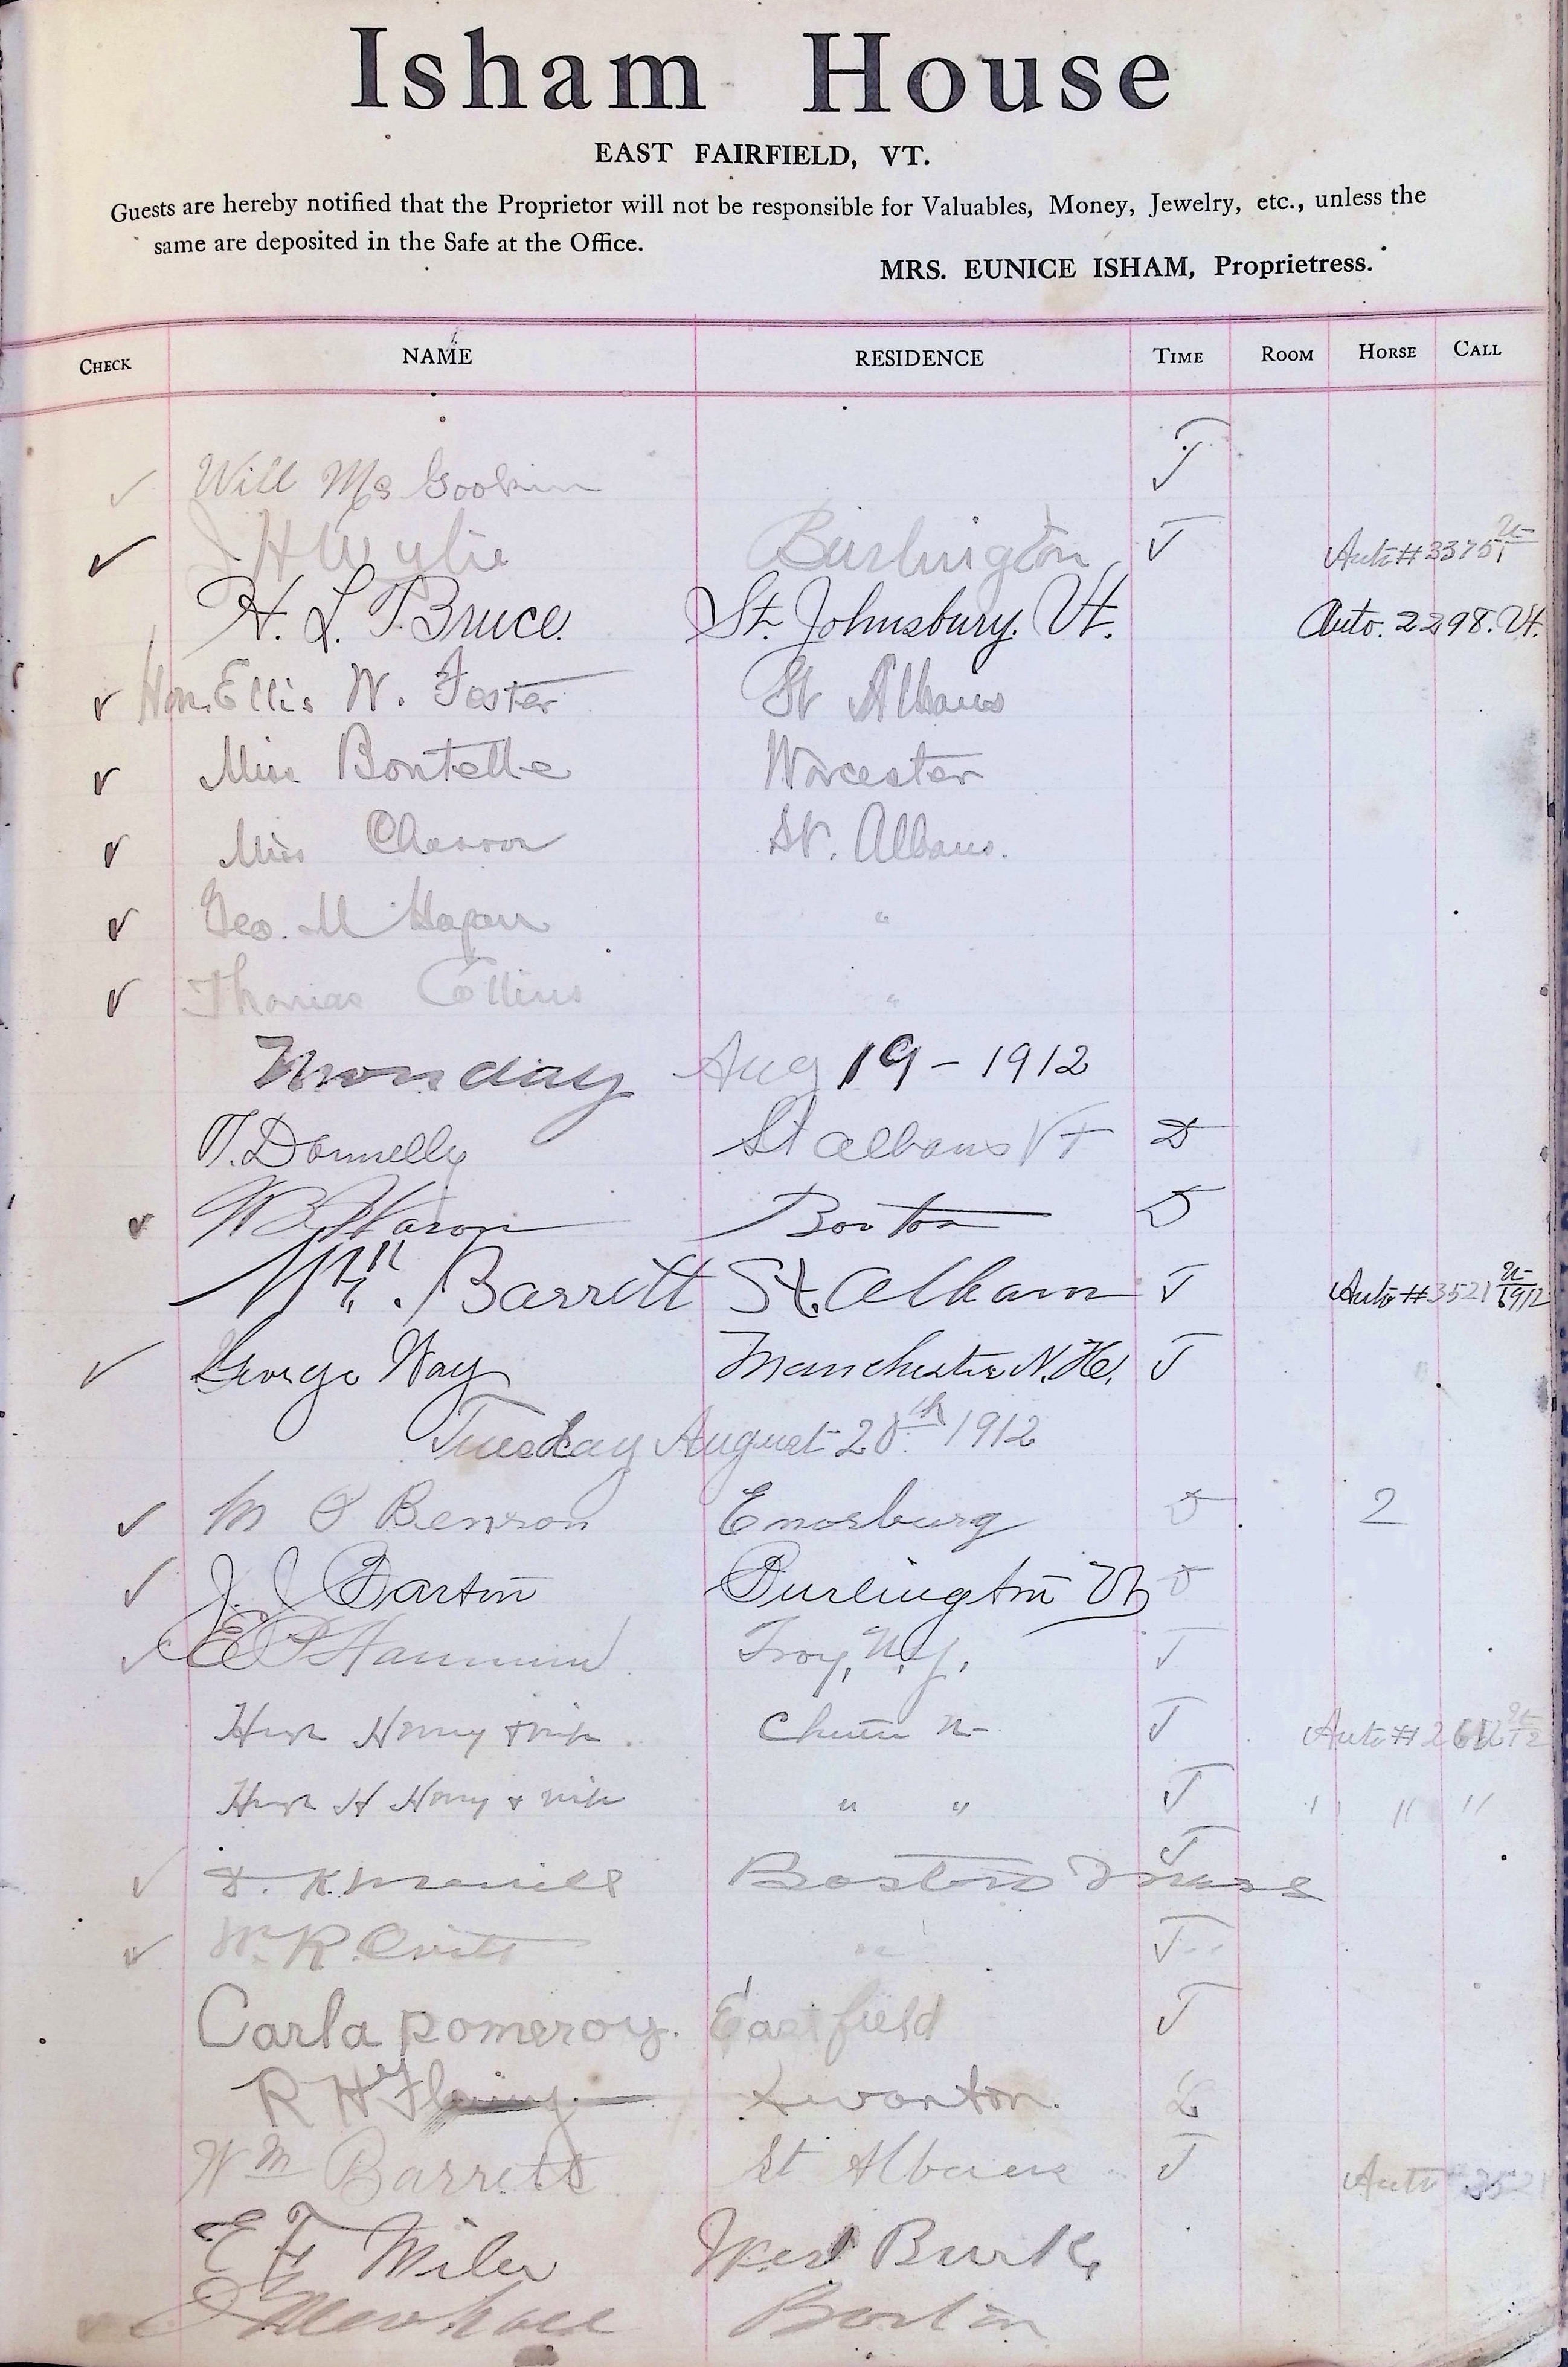 Isham House
EAST FAIRFIELD, VT.
Guests are hereby notified that the Proprietor will not be responsible for Valuables, Money, Jewelry, etc., unless the
same are deposited in the Safe at the Office.
MRS. EUNICE ISHAM, Proprietress.
CHECK NAME RESIDENCE TIME ROOM HORSE CALL
✓ Will Mc Gookin T
✓ J H Wylie Burlington T Auto # 3375
H. L. Bruce. St. Johnsbury. Vt. Auto. 2298. Vt.
✓ Hon. Ellis W. Foster St Albans
✓ Miss Bontelle Worcester
✓ Miss St. Albans.
✓ Geo. M Hagan "
✓ Thomas Collins "
Monday Aug 19 - 1912
T. Donnelly St albans VT D
✓ W B Boston D
Wm. Barrett St. Albans T Auto # 3521 1912
✓ George Way Manchester N.H. T
Tuesday August 20th 1912
✓ M O Benson Enosburg D 2
✓ J. J. Barton Burlington Vt D
✓ E P Troy, N.Y. T
Hugh Henry & wife. Chester T Auto #
Hugh H Henry & wife " " T " " "
✓ K. Boston Mass T
✓ W. R. " T
Carla Pomeroy. Eastfield T
R H Swanton. L
Wm Barrett St Albans T Auto 3521
E F Miler West Burke
Boston